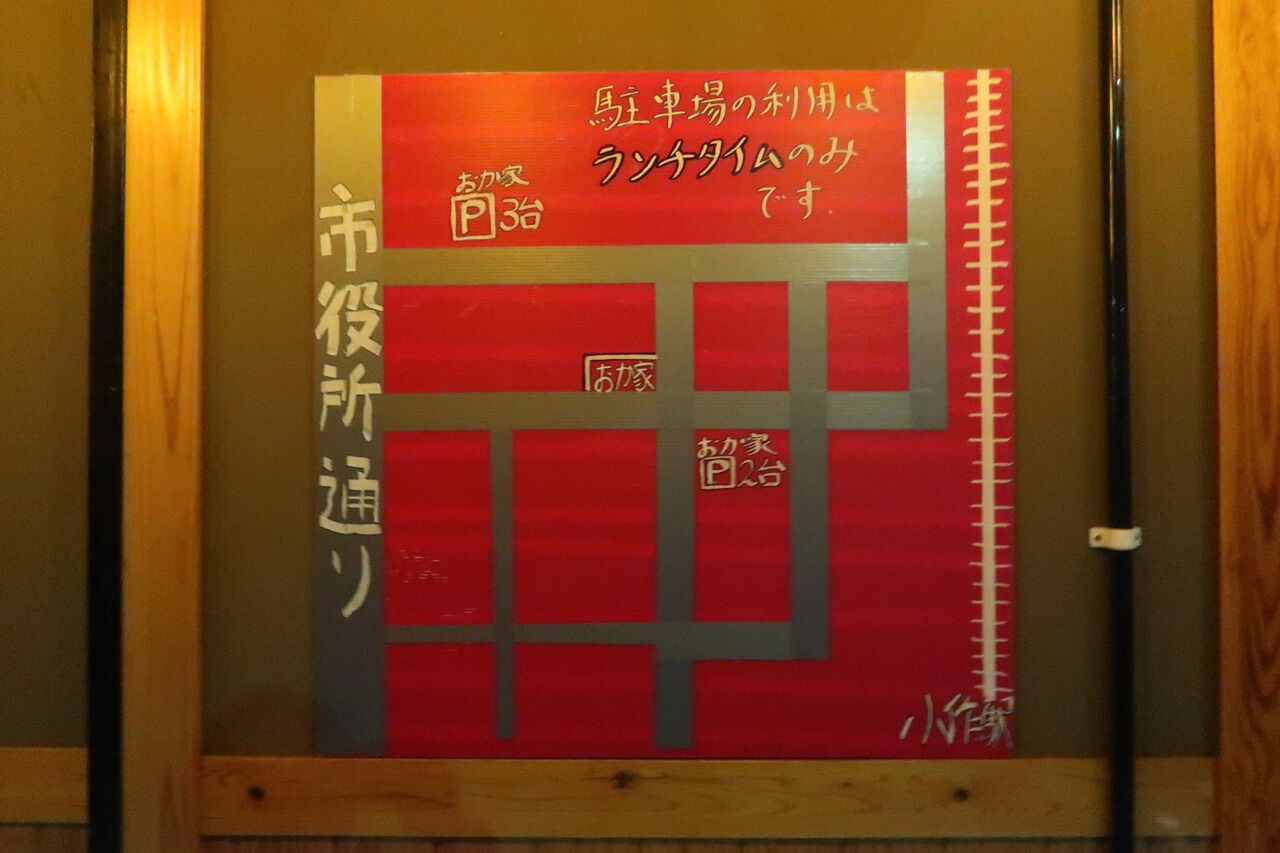 駐車場の利用は
ランチタイムのみ
です.
おか家
P 3台
市役所通り
おか家
おか家
P 2台
小作駅